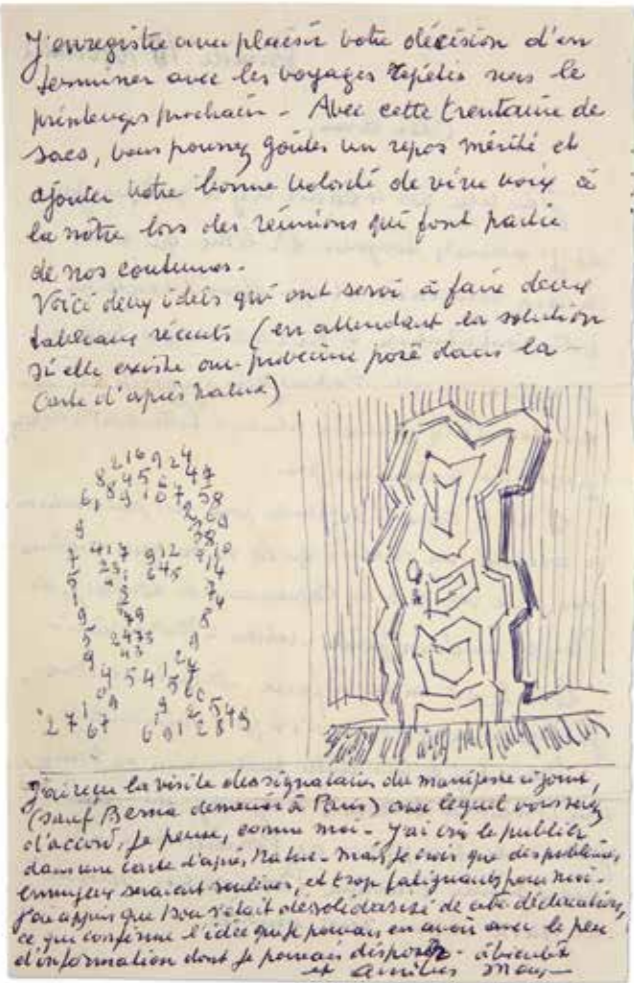 J'enregistre avec plaisir votre décision d'en
terminer avec les voyages répétés vers le
printemps prochain - Avec cette trentaine de
sacs, vous pourrez goûter un repos mérité et
ajouter votre bonne volonté de vive voix à
la nôtre lors des réunions qui font partie
de nos coutumes.
Voici deux idées qui ont servi à faire deux
tableaux récents (en attendant la solution
si elle existe au problème posé dans la
Carte d'après Nature)
J'ai reçu la visite des signataires du manifeste ci-joint,
(sauf Bernia demeurant à Paris) avec lequel vous serez
d'accord, je pense, comme moi - J'ai cru le publier
dans une carte d'après Nature - Mais, je crois que des problèmes
ennuyeux seraient soulevés, et trop fatiguants pour moi -
J'ai appris que s'était désolidarisé de cette déclaration,
ce qui confirme l'idée que je pouvais en avoir avec le peu
d'information dont je pouvais disposer - à bientôt
et amitiés